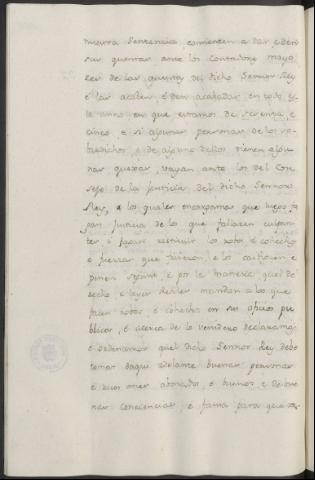 nuestra Sentencia comiencen a dar, e den
sus quentas ante los Contadores mayo-
res de las quentas del dicho Sennor Rey
e las acaben, e den acabadas en todo es-
te anno en que estamos de sesenta, e
cinco, e si algunas personas de los so-
bredichos, e de alguno dellos tienen algu-
nas quexas, vayan ante los del Con-
sejo de la justicia del dicho Sennor
Rey, a los quales encargamos que luego fa-
gan Justicia de lo que fallaren culpan-
tes é facer restituir los robos, é cohechos
é fuerzas que ficieron, é los castiguen é
pinen segunt, e por la manera quel de-
recho e leyes del Reyno mandan a los que
facen robos, é cohechos en sus oficios pu-
blicos, é acerca de lo venidero declaramos
é ordenamos quel dicho Sennor Rey debe
tomar daqui adelante buenas personas
é discretas abonados, é buenos, e de bue-
nas conciencias, e fama para que